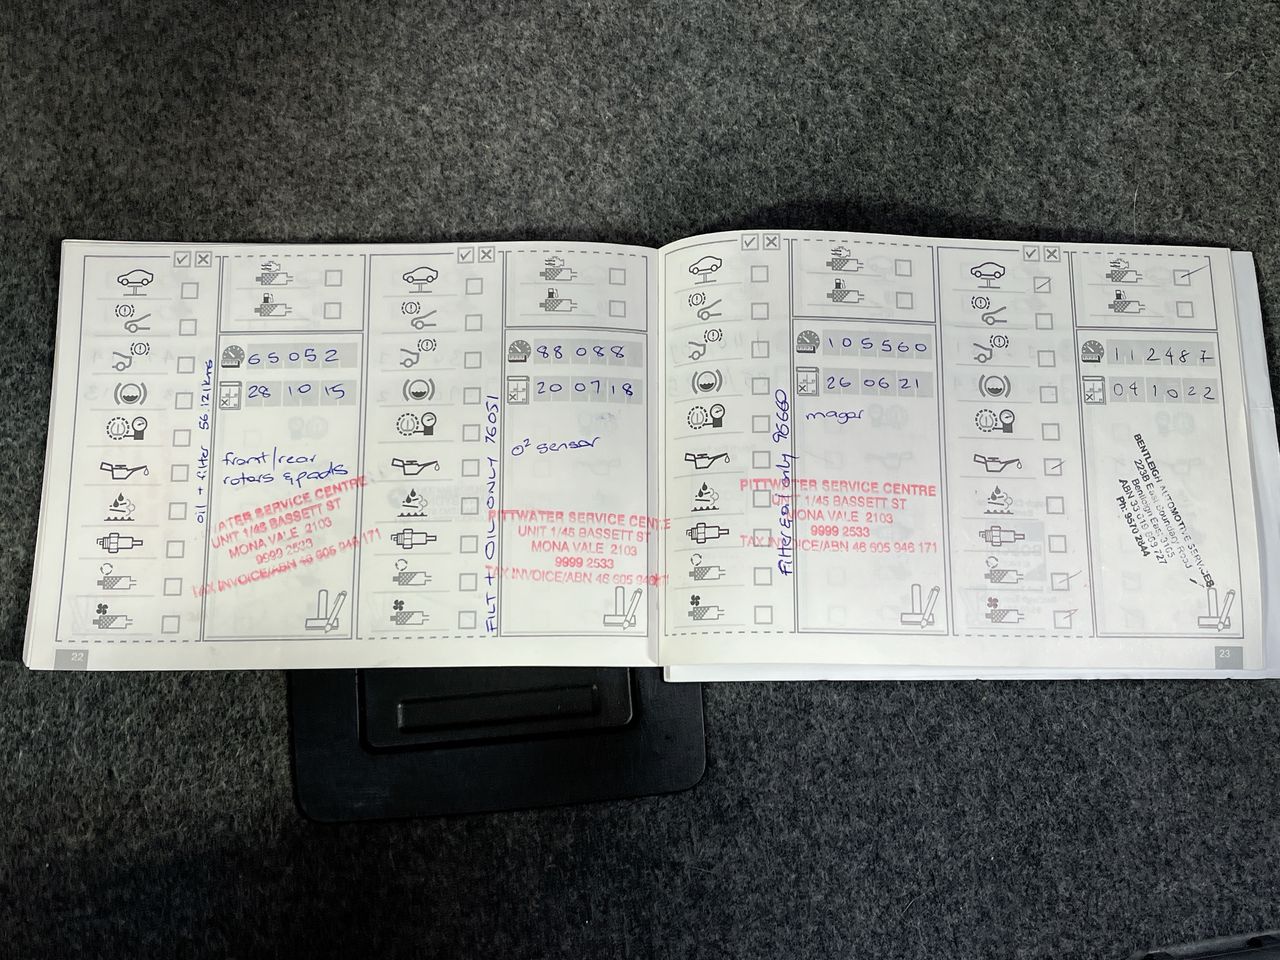 oil + filter 56.121kms
65052
28 10 15
front/rear
rotors & pads
WATER SERVICE CENTRE
UNIT 1/45 BASSETT ST
MONA VALE 2103
9999 2533
TAX INVOICE/ABN 46 605 946 171
22
FILT + OIL ONLY 76051
88088
20 07 18
O² sensor
PITTWATER SERVICE CENTRE
UNIT 1/45 BASSETT ST
MONA VALE 2103
9999 2533
TAX INVOICE/ABN 46 605 946 171
Filter & oil only 95660
105560
26 06 21
major
PITTWATER SERVICE CENTRE
UNIT 1/45 BASSETT ST
MONA VALE 2103
9999 2533
TAX INVOICE/ABN 46 605 946 171
112487
04 10 22
BENTLEIGH AUTOMOTIVE SERVICES
223B East Boundary Road
Bentleigh East 3165
Ph: 9570 2844
23